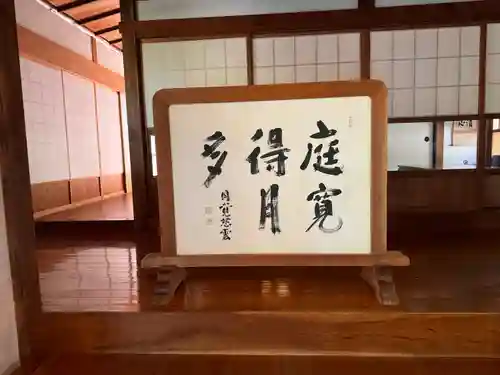 庭寛
得月
多